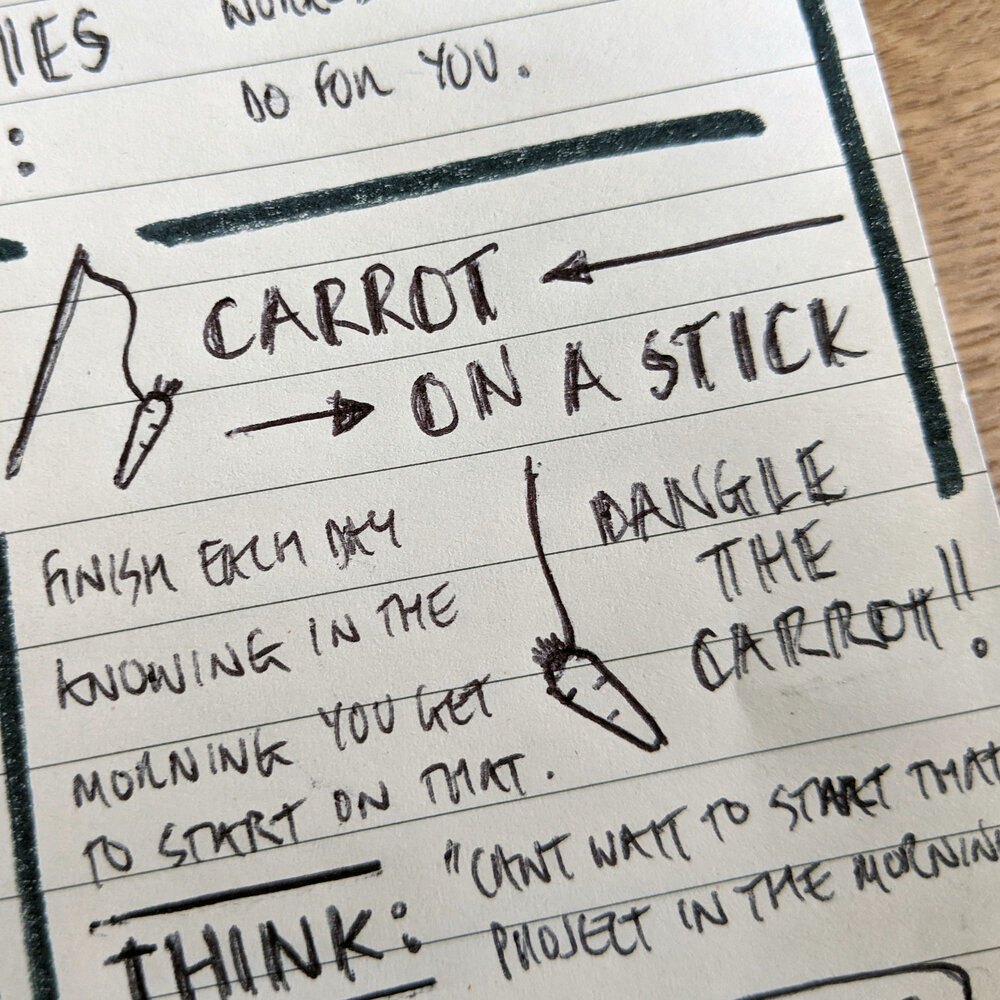 DO FOR YOU.
:
CARROT
ON A STICK
FINISH EACH DAY
KNOWING IN THE
MORNING YOU GET
TO START ON THAT.
DANGLE
THE
CARROT".
THINK:
"CANT WAIT TO START THAT
PROJECT IN THE MORNING